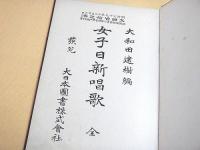 大和田建樹編
女子日新唱歌 全
發兌 大日本圖書株式會社